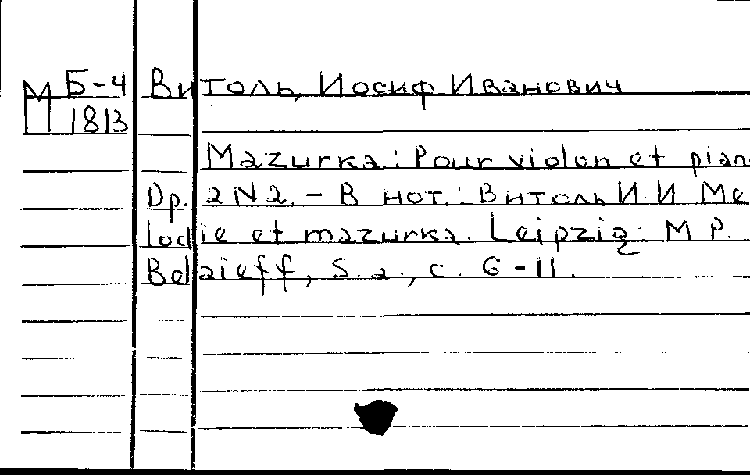 М Б-4 Витоль, Иосиф Иванович
1813
Mazurka: Pour violon et pian
Op. 2 N 2. - В нот.: Витоль И.И. Me
lodie et mazurka. Leipzig: M.P.
Belaieff, S.a., с. 6-11.